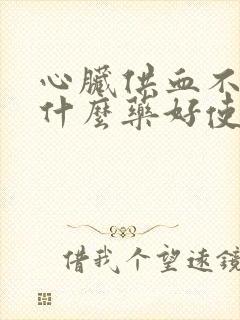 心臟供血不
什麼藥好使
借我个望遠鏡